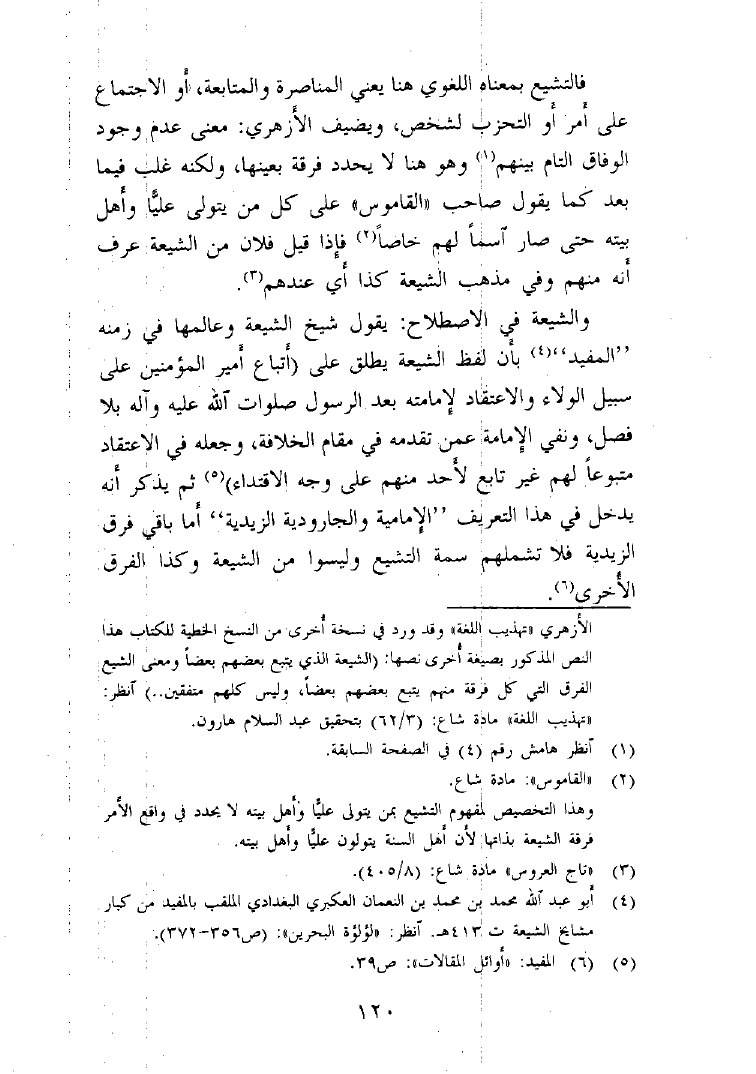 فالتشيع بمعناه اللغوي هنا يعني المناصرة والمتابعة، أو الاجتماع
على أمر أو التحزب لشخص، ويضيف الأزهري: معنى عدم وجود
الوفاق التام بينهم(١) وهو هنا لا يحدد فرقة بعينها، ولكنه غلب فيما
بعد كما يقول صاحب «القاموس» على كل من يتولى عليًّا وأهل
بيته حتى صار آسماً لهم خاصاً(٢) فإذا قيل فلان من الشيعة عرف
أنه منهم وفي مذهب الشيعة كذا أي عندهم(٣).
والشيعة في الاصطلاح: يقول شيخ الشيعة وعالمها في زمنه
”المفيد“(٤) بأن لفظ الشيعة يطلق على (أتباع أمير المؤمنين على
سبيل الولاء والاعتقاد لإمامته بعد الرسول صلوات الله عليه وآله بلا
فصل، ونفي الإمامة عمن تقدمه في مقام الخلافة، وجعله في الاعتقاد
متبوعاً لهم غير تابع لأحد منهم على وجه الاقتداء)(٥) ثم يذكر أنه
يدخل في هذا التعريف ”الإمامية والجارودية الزيدية“ أما باقي فرق
الزيدية فلا تشملهم سمة التشيع وليسوا من الشيعة وكذا الفرق
الأخرى(٦).
الأزهري «تهذيب اللغة» وقد ورد في نسخة أخرى من النسخ الخطية للكتاب هذا
النص المذكور بصيغة أخرى نصها: (الشيعة الذي يتبع بعضهم بعضاً ومعنى الشيع
الفرق التي كل فرقة منهم يتبع بعضهم بعضاً، وليس كلهم متفقين..) آنظر:
«تهذيب اللغة» مادة شاع: (٦٢/٣) بتحقيق عبد السلام هارون.
(١) آنظر هامش رقم (٤) في الصفحة السابقة.
(٢) «القاموس»: مادة شاع.
وهذا التخصيص لمفهوم التشيع بمن يتولى عليًّا وأهل بيته لا يحدد في واقع الأمر
فرقة الشيعة بذاتها لأن أهل السنة يتولون عليًّا وأهل بيته.
(٣) «تاج العروس» مادة شاع: (٤٠٥/٨).
(٤) أبو عبد الله محمد بن محمد بن النعمان العكبري البغدادي الملقب بالمفيد من كبار
مشايخ الشيعة ت ٤١٣هـ. آنظر: «لؤلؤة البحرين»: (ص٣٥٦-٣٧٢).
(٥) (٦) المفيد: «أوائل المقالات»: ص٣٩.
١٢٠